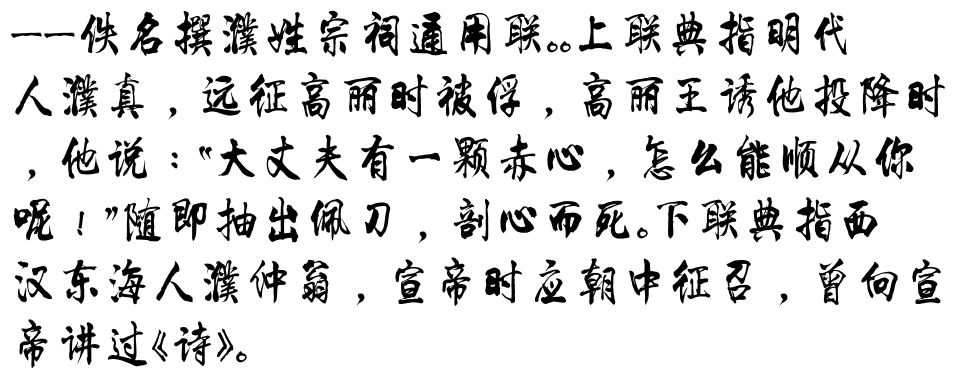 ——佚名撰濮姓宗祠通用联。。上联典指明代
人濮真，远征高丽时被俘，高丽王诱他投降时
，他说：“大丈夫有一颗赤心，怎么能顺从你
呢！”随即抽出佩刀，剖心而死。下联典指西
汉东海人濮仲翁，宣帝时应朝中征召，曾向宣
帝讲过《诗》。